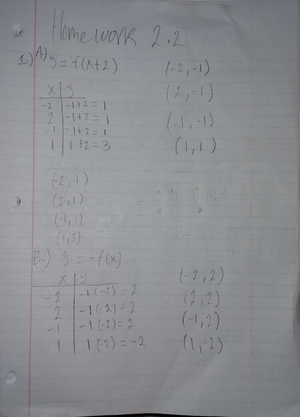 Homework 2.2
1.) A) y = f(x+2) (-2, -1)
x | y (2, -1)
-2 | -1+2 = 1
2 | -1+2 = 1 (-1, -1)
-1 | -1+2 = 1
1 | 1+2 = 3 (1, 1)
(-2, 1)
(2, 1)
(-1, 1)
(1, 3)
B.) y = -f(x)
x | y (-2, 2)
-2 | -1(-2) = 2
2 | -1(-2) = 2 (2, 2)
-1 | -1(-2) = 2 (-1, 2)
1 | 1(-2) = -2 (1, -2)